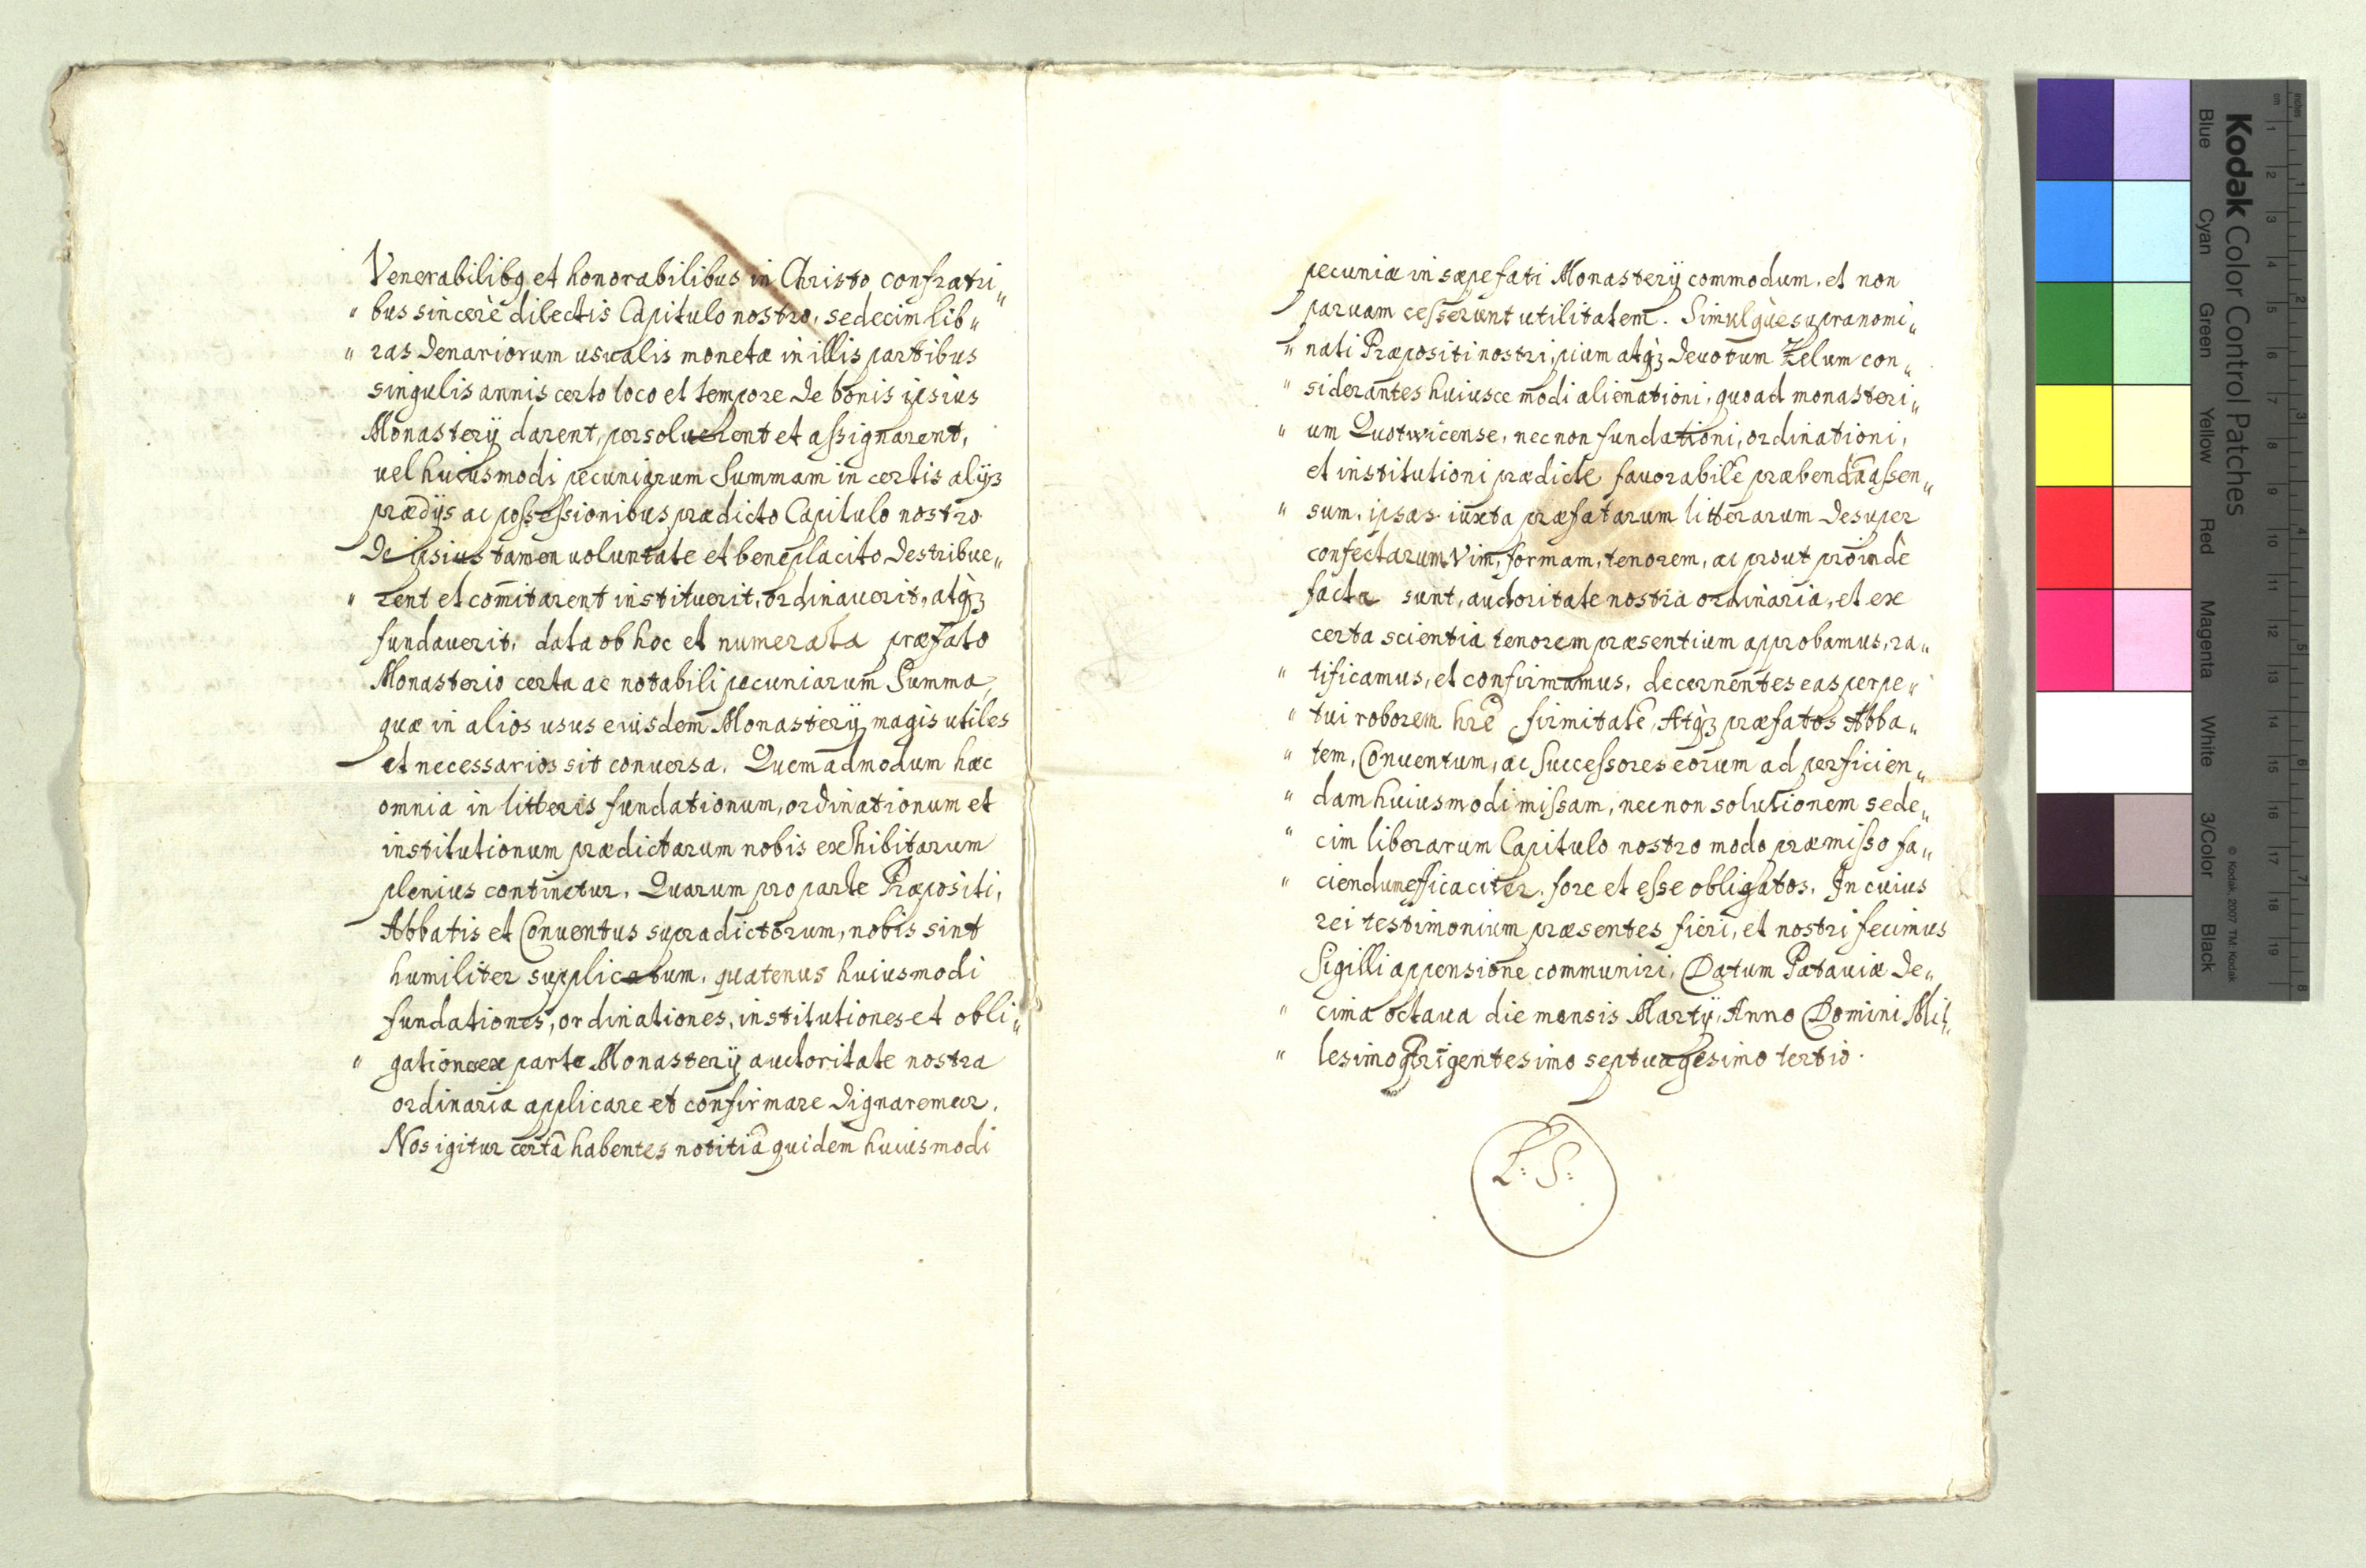 Venerabilibq et honorabilibus in Christo confratri„
„ bus sincerè dilectis Capitulo nostro, sedecim lib„
„ ras denariorum usualis monetæ in illis partibus
singulis annis certo loco et tempore de bonis ipsius
Monasterÿ darent, persoluerent et aßignarent,
uel huiusmodi pecuniarum Summam in certis alÿs
prædÿs ac poßeßionibus prædicto Capitulo nostro
de ipsius tamen uoluntate et beneplacito destribue„
„ rent et comitarent instituerit, ordinauerit, atq̀ꝫ
fundauerit, data ob hoc et numerata præfato
Monasterio certa ac notabili pecuniarum Summa,
quæ in alios usus eiusdem Monasterÿ magis utiles
et necessarios sit conuersa. Quemadmodum hæc
omnia in litteris fundationum, ordinationum et
institutionum prædictarum nobis exhibitarum
plenius continetur. Quarum pro parte Præpositi,
Abbatis et Conuentus supradictorum, nobis sint
humiliter supplicatum, quatenus huiusmodi
fundationes, ordinationes, institutiones et obli„
„ gationes ex parte Monasterÿ auctoritate nostra
ordinaria applicare et confirmare dignaremur.
Nos igitur certâ habentes notitiâ quidem huiusmodi
pecuniæ in sæpefati Monasterÿ commodum, et non
paruam ceßerunt utilitatem. Simulq̀ue supranomi„
„ nati Præpositi nostri, pium atq̀ꝫ deuotum Zelum con„
„ siderantes huiusce modi alienationi, quoad monasteri„
„ um Lustwicense, necnon fundationi, ordinationi,
et institutioni prædictę fauorabile præbenda aßen„
„ sum, ipsas iuxta præfatarum litterarum desuper
confectarum Vim, formam, tenorem, ac prout proindè
facta sunt, auctoritate nostra ordinaria, et ex
certa scientia tenorem præsentium approbamus, ra„
„ tificamus, et confirmamus, decernentes eas perpe„
„ tui roborem hrē firmitatē, Atq̀ꝫ præfatos Abba„
„ tem, Conuentum, ac Succeßores eorum ad perficien„
„ dam huiusmodi mißam, necnon solutionem sede„
„ cim liberarum Capitulo nostro modo præmißo fa„
„ ciendum efficaciter, fore et eße obligatos. In cuius
rei testimonium præsentes fieri, et nostri fecimus
Sigilli appensione communiri, Datum Patauiæ de„
„ cima octaua die mensis Martÿ, Anno Domini Mil„
„ lesimo Trigentesimo septuagesimo tertio.
L: S:
Kodak Color Control Patches
Blue Cyan Green Yellow Red Magenta White 3/Color Black
© Kodak, 2007 TM: Kodak
inches 1 2 3 4 5 6 7 8
cm 1 2 3 4 5 6 7 8 9 10 11 12 13 14 15 16 17 18 19